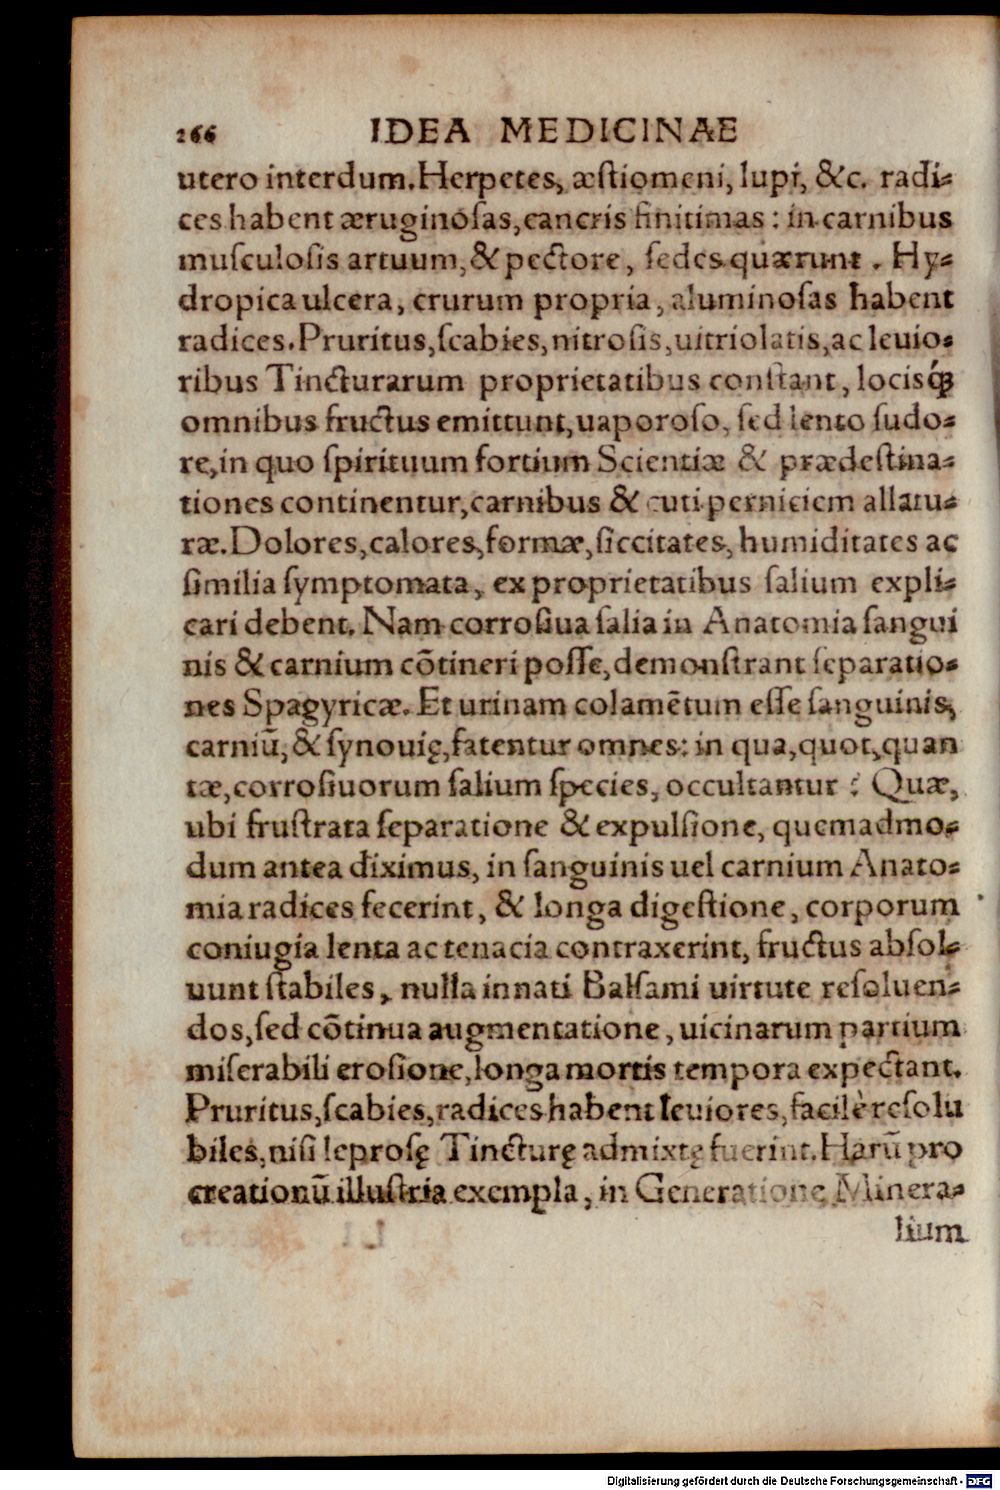 266 IDEA MEDICINAE
utero interdum. Herpetes, æſtiomeni, lupi, &c. radi-
ces habent æruginoſas, cancris finitimas: in carnibus
muſculoſis artuum, & pectore, ſedes quærunt. Hy-
dropica ulcera, crurum propria, aluminoſas habent
radices. Pruritus, ſcabies, nitroſis, uitriolatis, ac leuio-
ribus Tincturarum proprietatibus conſtant, locisq́ꝫ
omnibus fructus emittunt, uaporoſo, ſed lento ſudo-
re, in quo ſpirituum fortium Scientiæ & prædeſtina-
tiones continentur, carnibus & cuti perniciem allatu-
ræ. Dolores, calores, formæ, ſiccitates, humiditates ac
ſimilia ſymptomata, ex proprietatibus ſalium expli-
cari debent. Nam corroſiua ſalia in Anatomia ſangui
nis & carnium cōtineri poſſe, demonſtrant ſeparatio-
nes Spagyricæ. Et urinam colamētum eſſe ſanguinis,
carniū, & ſynouię, fatentur omnes: in qua, quot, quan
tæ, corroſiuorum ſalium ſpecies, occultantur? Quæ,
ubi fruſtrata ſeparatione & expulſione, quemadmo-
dum antea diximus, in ſanguinis uel carnium Anato-
mia radices fecerint, & longa digeſtione, corporum
coniugia lenta ac tenacia contraxerint, fructus abſol-
uunt ſtabiles, nulla innati Balſami uirtute reſoluen-
dos, ſed cōtinua augmentatione, uicinarum partium
miſerabili eroſione, longa mortis tempora expectant.
Pruritus, ſcabies, radices habent leuiores, facilè reſolu
biles, niſi leproſę Tincturę admixtę fuerint. Harū pro
creationū illuſtria exempla, in Generatione Minera-
lium
Digitalisierung gefördert durch die Deutsche Forschungsgemeinschaft - DFG